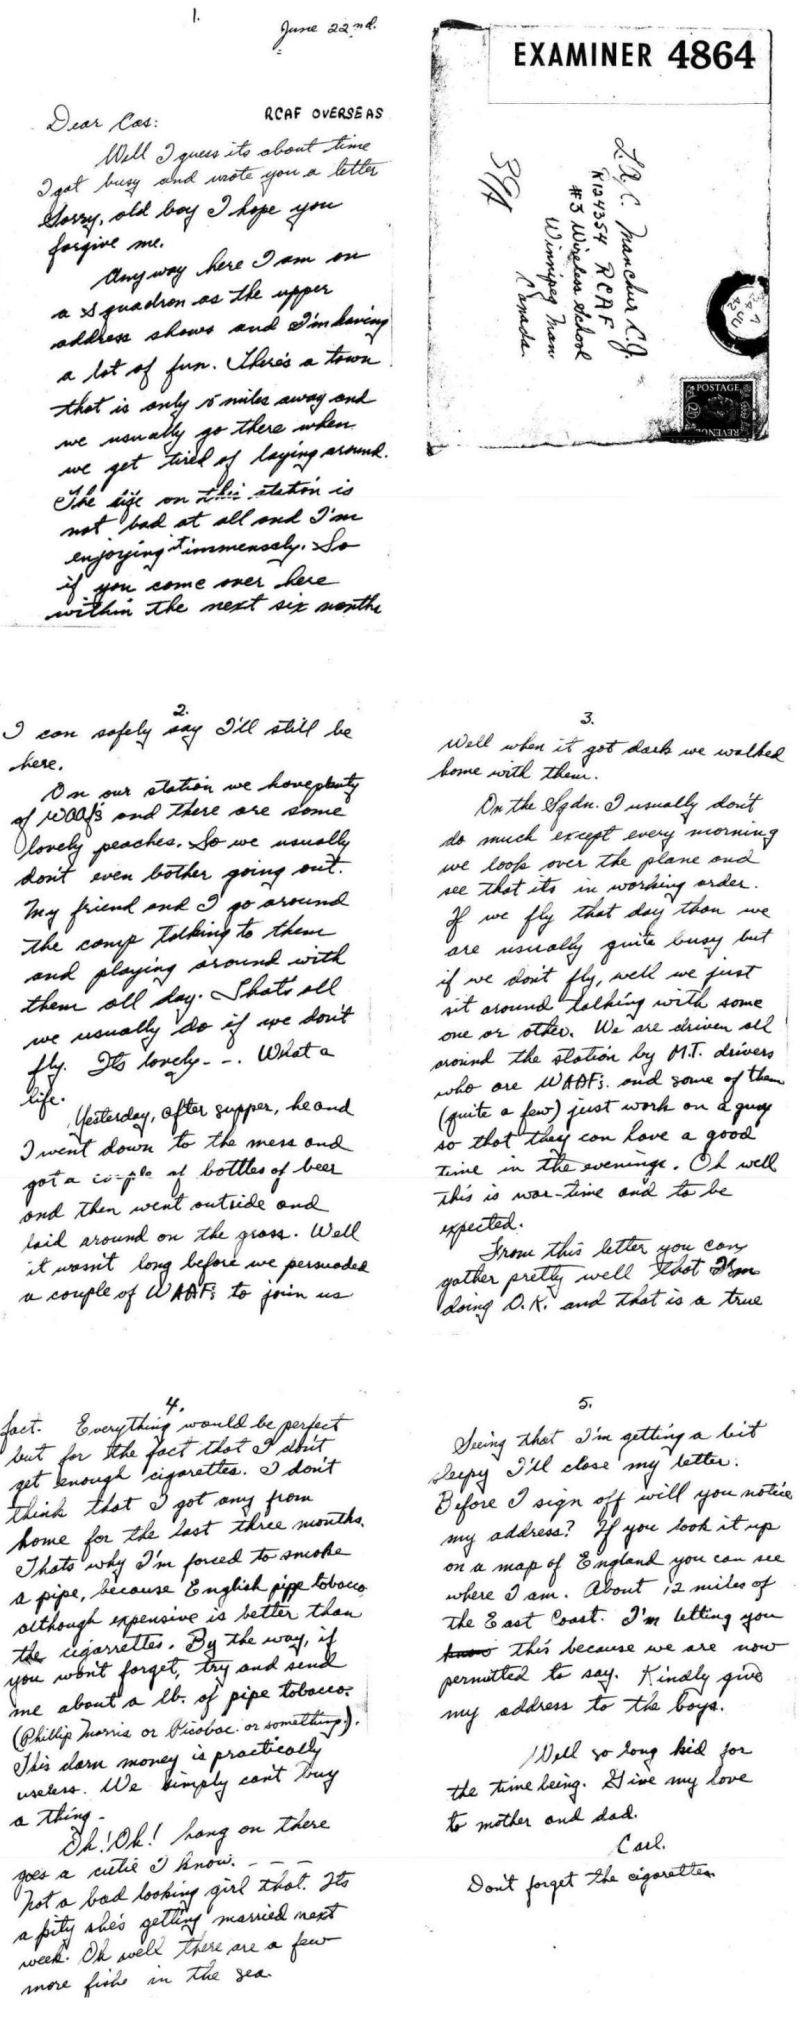 1.
June 22nd.
RCAF OVERSEAS
Dear Cas:
Well I guess its about time
I got busy and wrote you a letter
Sorry, old boy I hope you
forgive me.
Anyway here I am on
a Squadron as the upper
address shows and I'm having
a lot of fun. There's a town
that is only 5 miles away and
we usually go there when
we get tired of laying around.
The life on this station is
not bad at all and I'm
enjoying it immensely. So
if you come over here
within the next six months
EXAMINER 4864
L.A.C. Manchur C.J.
R124354 RCAF
#3 Wireless School
Winnipeg Man
Canada.
POSTAGE
REVENUE
2.
I can safely say I'll still be
here.
On our station we have plenty
of WAAFs and there are some
lovely peaches. So we usually
don't even bother going out.
My friend and I go around
the camp talking to them
and playing around with
them all day. Thats all
we usually do if we don't
fly. Its lovely - -. What a
life.
Yesterday, after supper, he and
I went down to the mess and
got a couple of bottles of beer
and then went outside and
laid around on the grass. Well
it wasn't long before we persuaded
a couple of WAAFs to join us
3.
Well when it got dark we walked
home with them.
On the Sqdn. I usually don't
do much except every morning
we look over the plane and
see that its in working order.
If we fly that day than we
are usually quite busy but
if we don't fly, well we just
sit around talking with some
one or other. We are driven all
around the station by M.T. drivers
who are WAAFs. and some of them
(quite a few) just work on a guy
so that they can have a good
time in the evenings. Oh well
this is war-time and to be
expected.
From this letter you can
gather pretty well that I'm
doing O.K. and that is a true
4.
fact. Everything would be perfect
but for the fact that I don't
get enough cigarettes. I don't
think that I got any from
home for the last three months.
Thats why I'm forced to smoke
a pipe, because English pipe tobacco
although expensive is better than
the cigarrettes. By the way, if
you won't forget, try and send
me about a lb. of pipe tobacco.
(Phillip Morris or Picobac. or something.).
This darn money is practically
useless. We simply can't buy
a thing -
Oh! Oh! hang on there
goes a cutie I know. - - -
Not a bad looking girl that. Its
a pity she's getting married next
week. Oh well there are a few
more fishe in the sea.
5.
Seeing that I'm getting a bit
sleepy I'll close my letter.
Before I sign off will you notice
my address? If you look it up
on a map of England you can see
where I am. About 12 miles of
the East Coast. I'm letting you
know this because we are now
permitted to say. Kindly give
my address to the boys.
Well so long kid for
the time being. Give my love
to mother and dad.
Carl.
Don't forget the cigarettes.